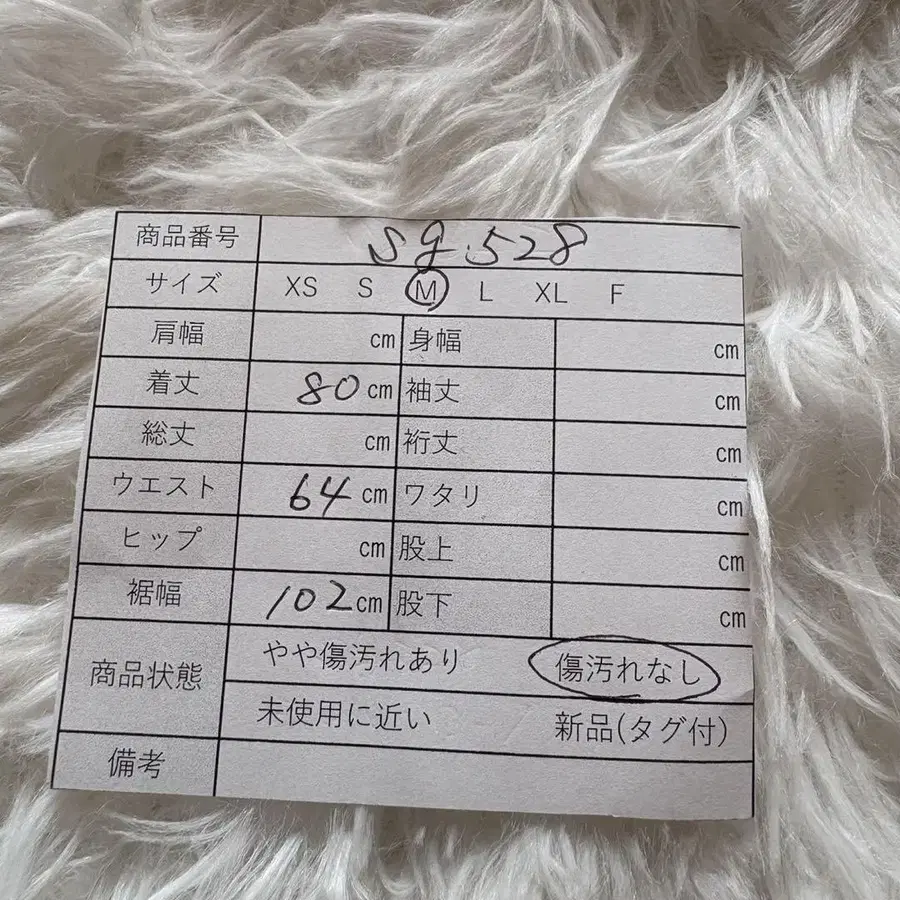 商品番号 sg.528
サイズ XS S M L XL F
肩幅 cm 身幅 cm
着丈 80 cm 袖丈 cm
総丈 cm 裄丈 cm
ウエスト 64 cm ワタリ cm
ヒップ cm 股上 cm
裾幅 102 cm 股下 cm
商品状態 やや傷汚れあり 傷汚れなし
未使用に近い 新品(タグ付)
備考